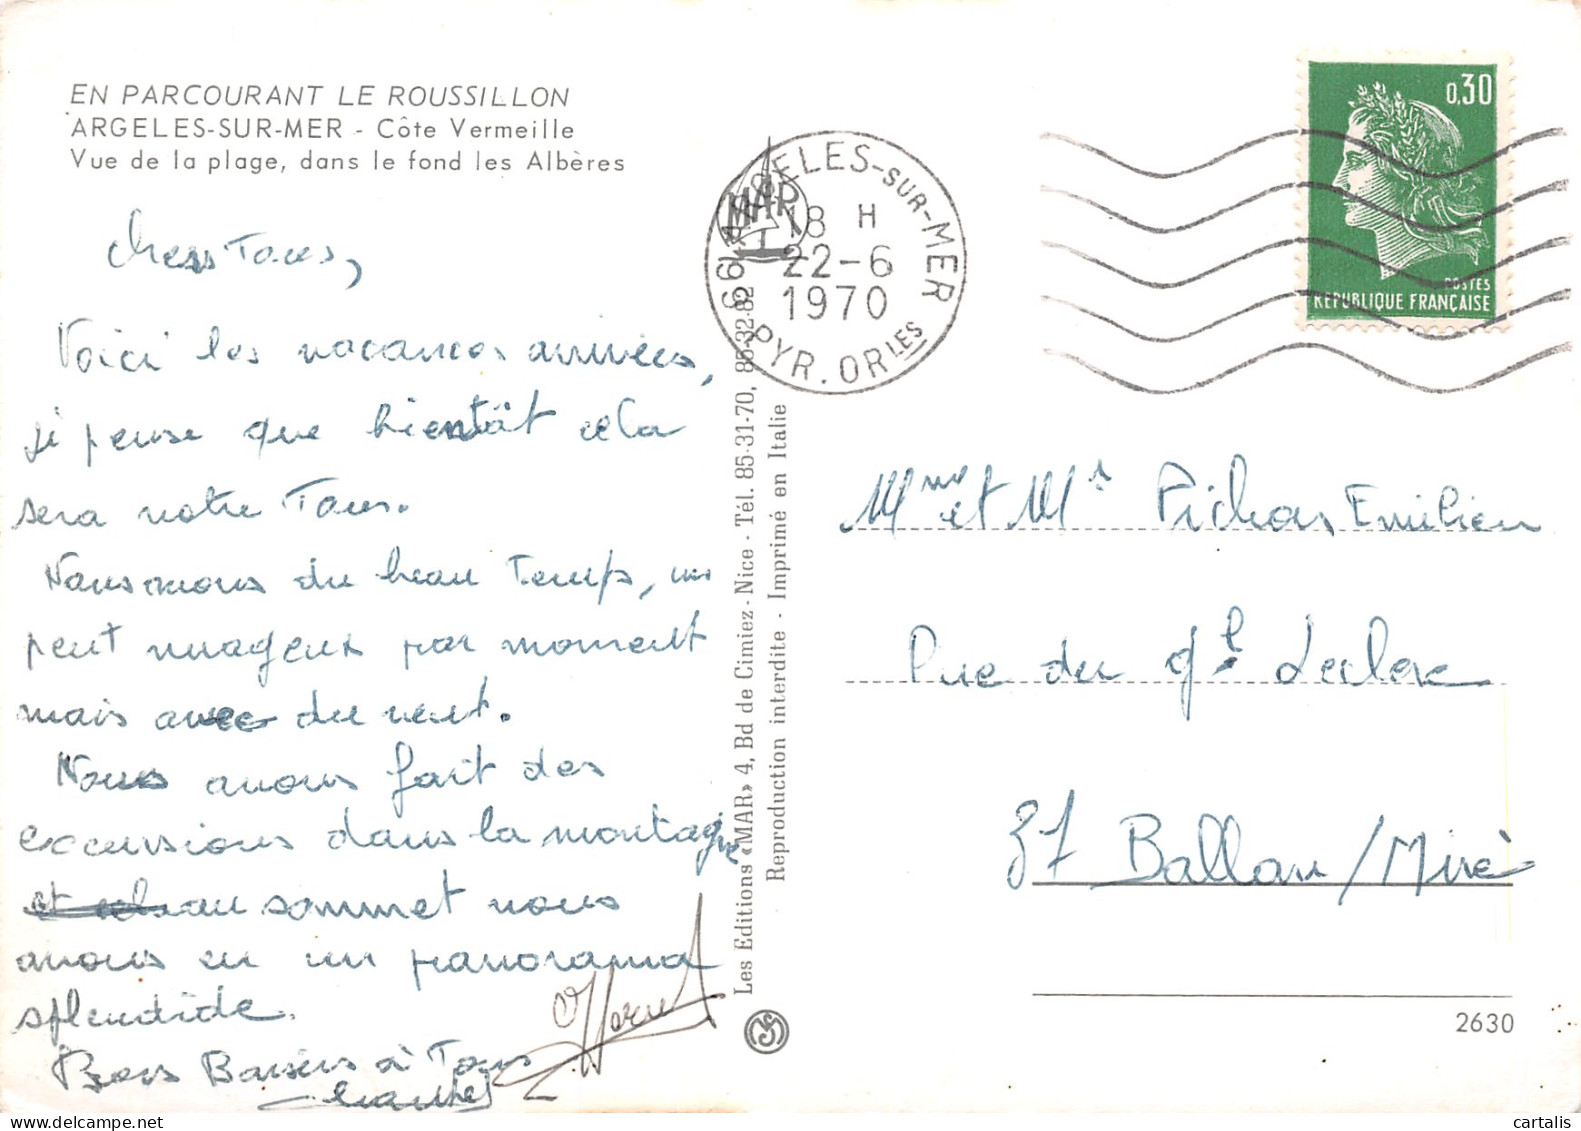 EN PARCOURANT LE ROUSSILLON
ARGELES-SUR-MER - Côte Vermeille
Vue de la plage, dans le fond les Albères
Chers Tous,
Voici les vacances arrivées,
je pense que bientôt cela
sera votre Tour.
Nous avons du beau Temps, un
peut nuageux par moment
mais avec du vent.
Nous avons fait des
excursions dans la montagne
au sommet nous
avons eu un panorama
splendide.
Bons Baisers à Tous
66 ARGELES-SUR-MER
18 H
22-6
1970
PYR. ORLES
MAR
Les Editions «MAR» 4, Bd de Cimiez - Nice - Tél. 85-31-70, 85-32-82
Reproduction interdite - Imprimé en Italie
0,30
POSTES
REPUBLIQUE FRANÇAISE
Mme et Mr Pichon Emilien
Rue du Gl Leclerc
37 Ballan/Miré
2630
cartalis